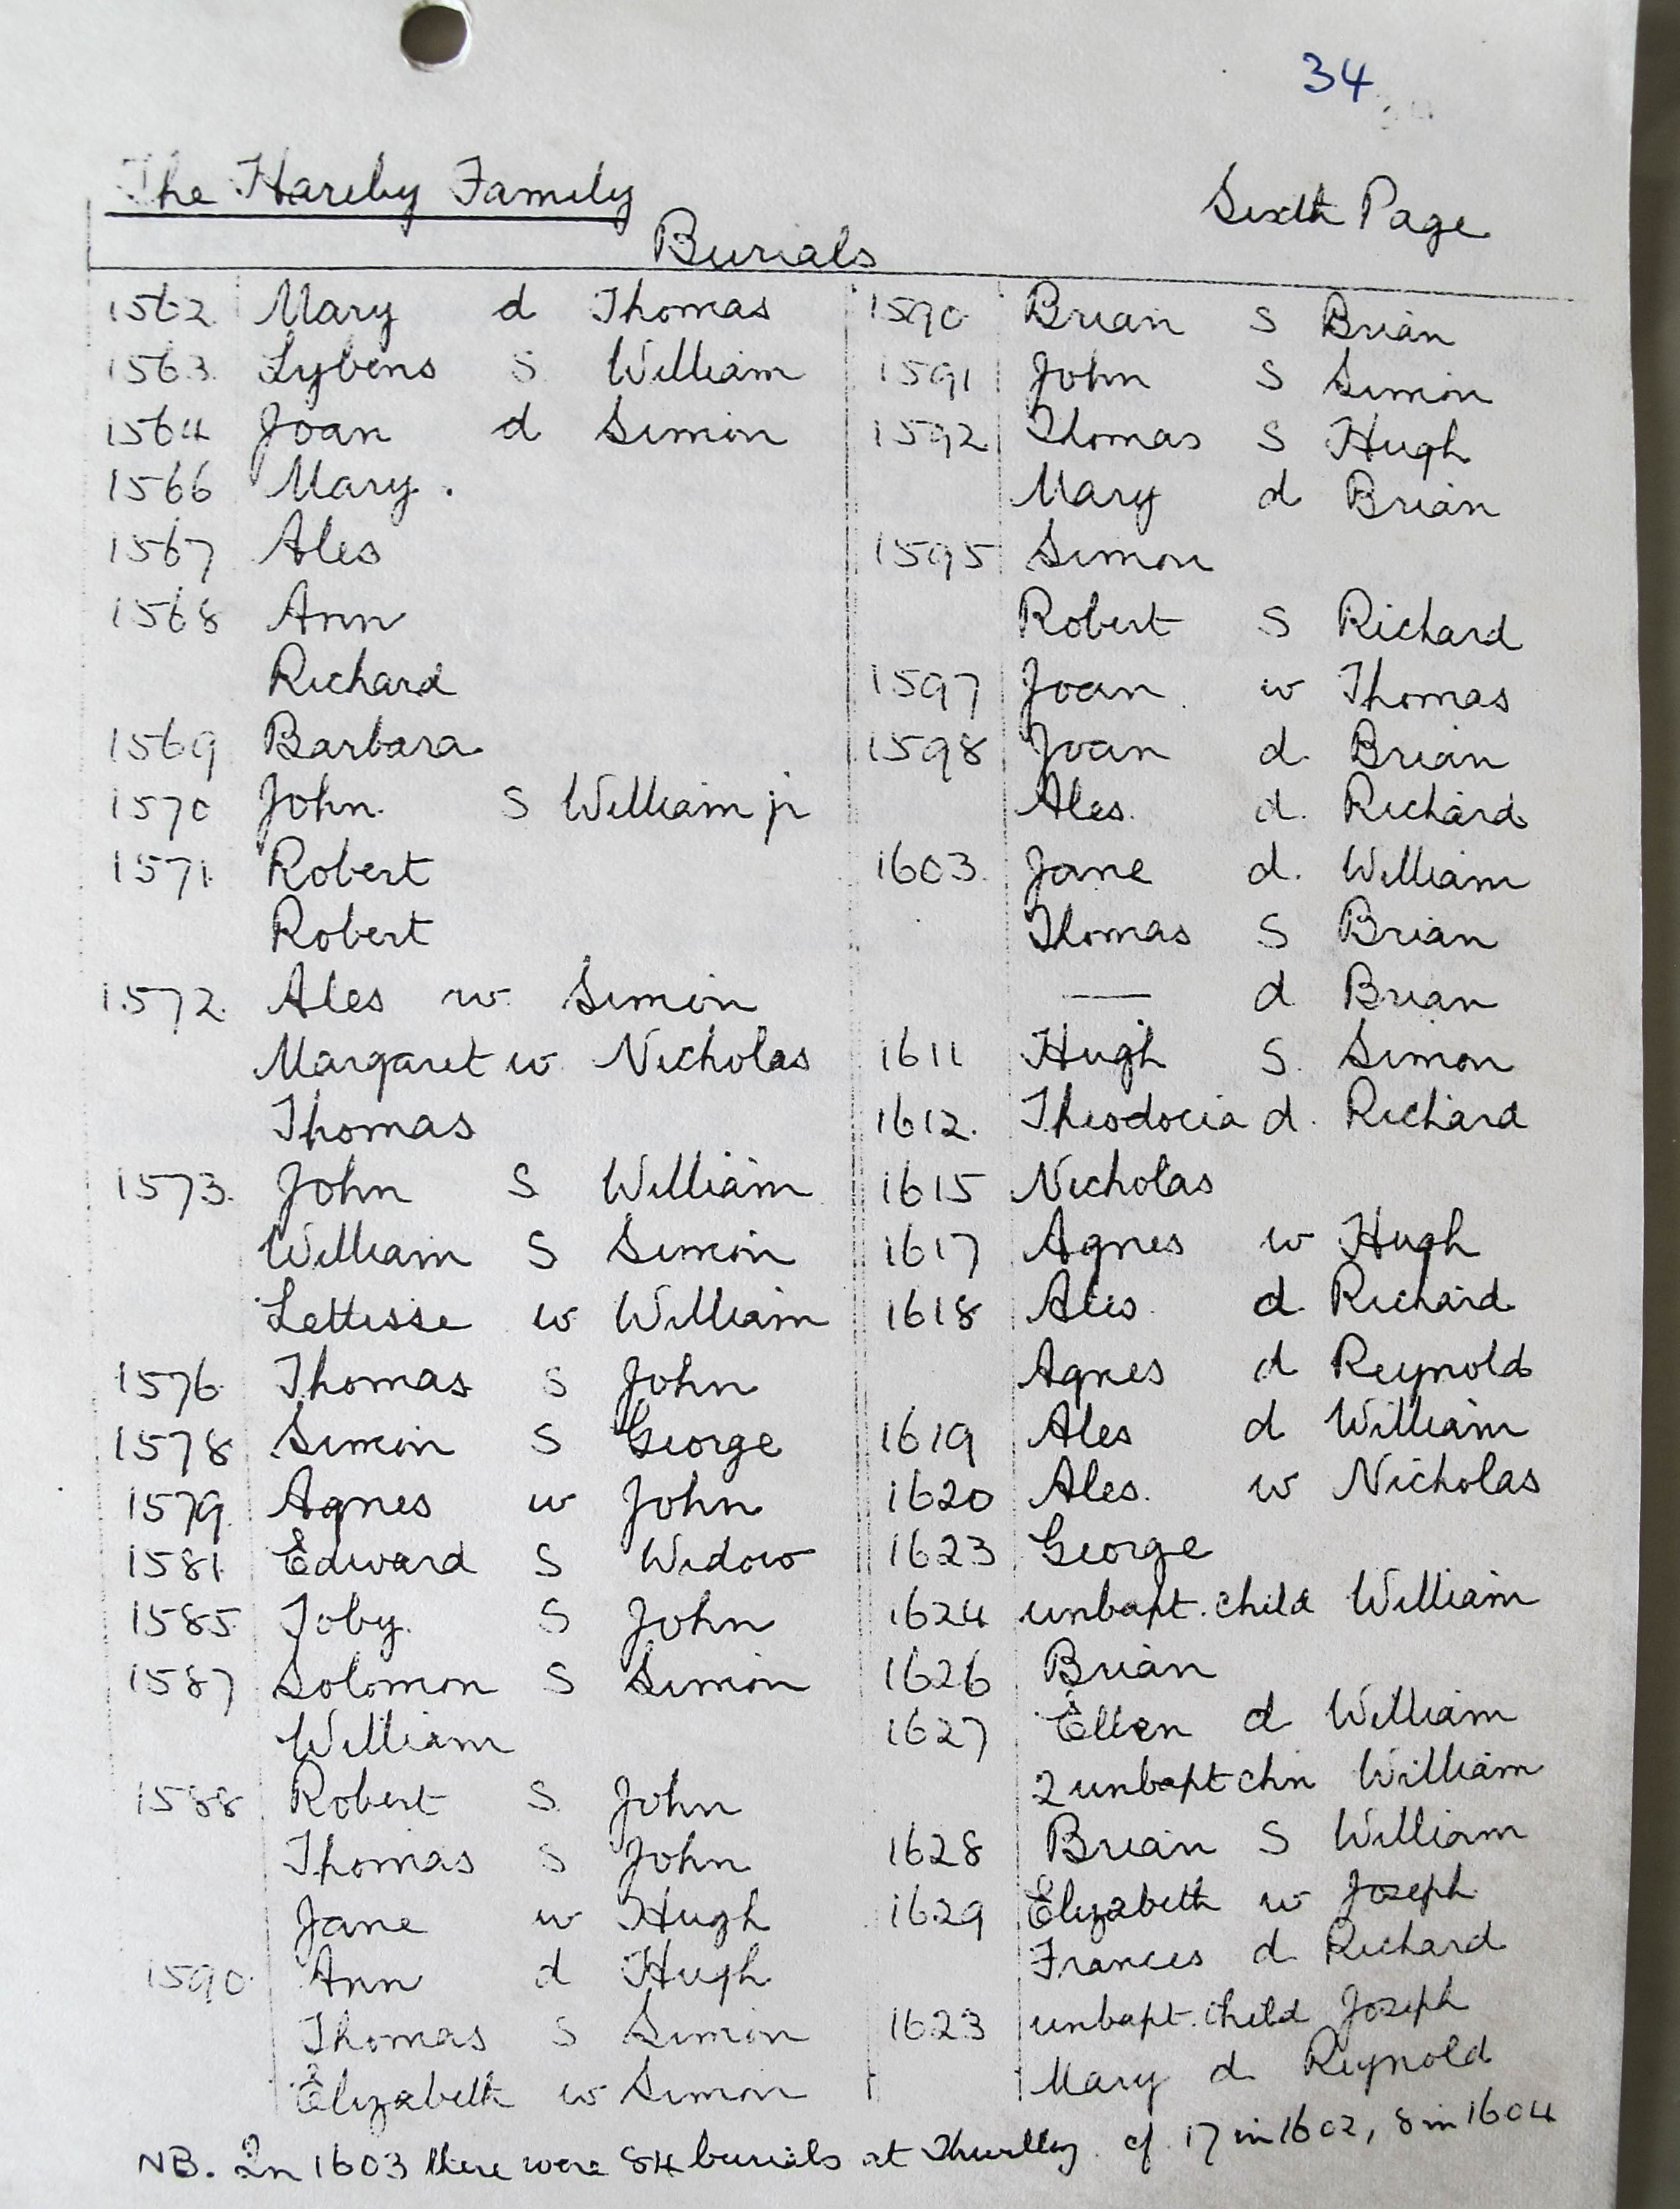 34
The Hareby Family
Sixth Page
Burials
1562 Mary d Thomas
1563 Lybens S William
1564 Joan d Simon
1566 Mary.
1567 Ales
1568 Ann
Richard
1569 Barbara
1570 John S William jr
1571 Robert
Robert
1572 Ales w Simon
Margaret w Nicholas
Thomas
1573 John S William
William S Simon
Lettisse w William
1576 Thomas S John
1578 Simon S George
1579 Agnes w John
1581 Edward S Widow
1585 Toby S John
1587 Solomon S Simon
William
1588 Robert S John
Thomas S John
Jane w Hugh
1590 Ann d Hugh
Thomas S Simon
Elizabeth w Simon
1590 Brian S Brian
1591 John S Simon
1592 Thomas S Hugh
Mary d Brian
1595 Simon
Robert S Richard
1597 Joan w Thomas
1598 Joan d Brian
Ales. d. Richard
1603 Jane d. William
Thomas S Brian
— d Brian
1611 Hugh S. Simon
1612. Theodocia d. Richard
1615 Nicholas
1617 Agnes w Hugh
1618 Ales d Richard
Agnes d Reynold
1619 Ales d William
1620 Ales. w Nicholas
1623 George
1624 unbapt. child William
1626 Brian
1627 Ellen d William
2 unbapt chn William
1628 Brian S William
1629 Elizabeth w Joseph
Frances d Richard
1623 unbapt. child Joseph
Mary d Reynold
NB. In 1603 there were 84 burials at Thurlby. cf. 17 in 1602, 8 in 1604